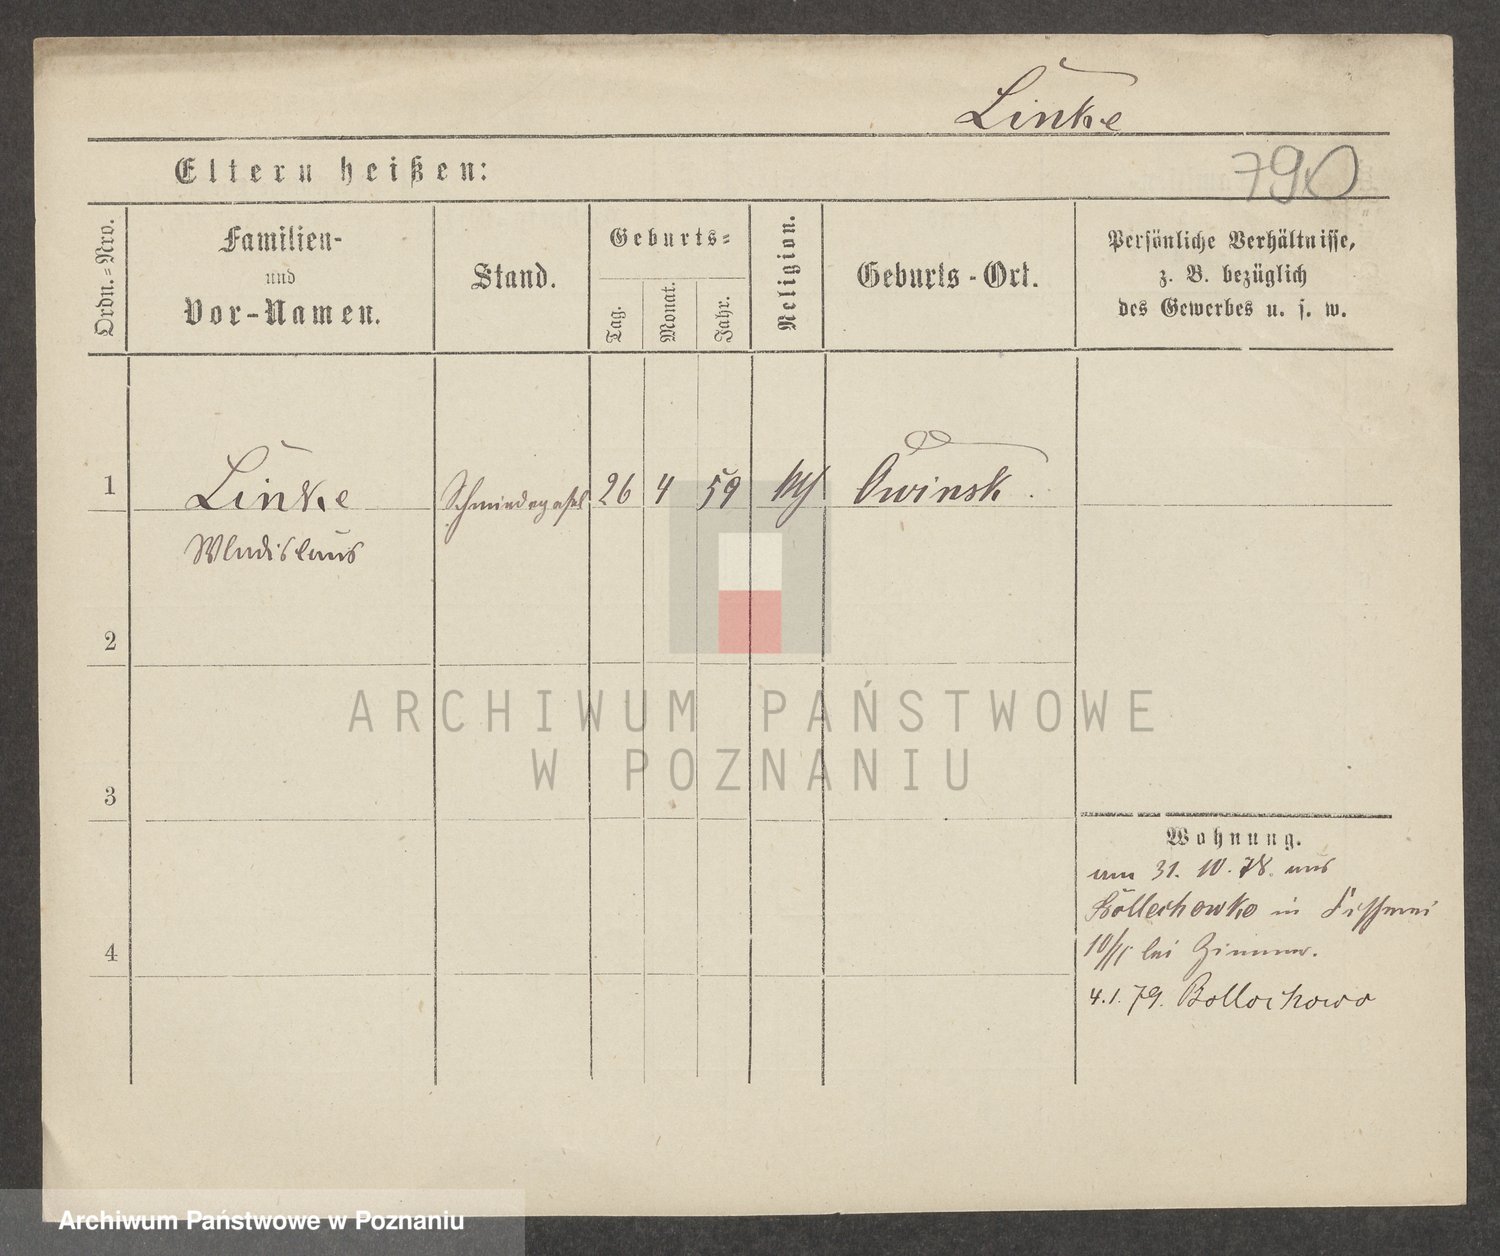 Linke
790
Eltern heißen:
Ordn.=Nro.
Familien-
und
Vor-Namen.
Stand.
Geburts=
Tag.
Monat.
Jahr.
Religion.
Geburts-Ort.
Persönliche Verhältnisse,
z. B. bezüglich
des Gewerbes u. s. w.
1
Linke
Wladislaus
Schmiedegesel
26
4
59
Owinsk.
2
3
4
Wohnung.
am 31. 10. 78. aus
in Fischerei
10/11 bei Zimmer.
4.1.79. Bollechowo
ARCHIWUM PAŃSTWOWE
W POZNANIU
Archiwum Państwowe w Poznaniu